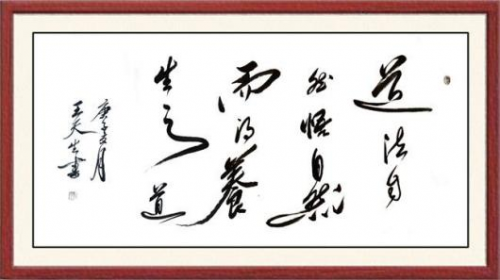 道法自
然悟自然
而得養
生之道
庚子月
王天生書